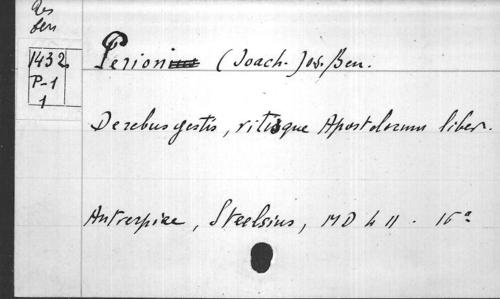 Res
ben
1432
P-1
1
Perion (Joach. Jos. Ben.
De rebus gestis, vitisque Apostolorum liber.
Antverpiae, Steelsius, MD L II. 16ª